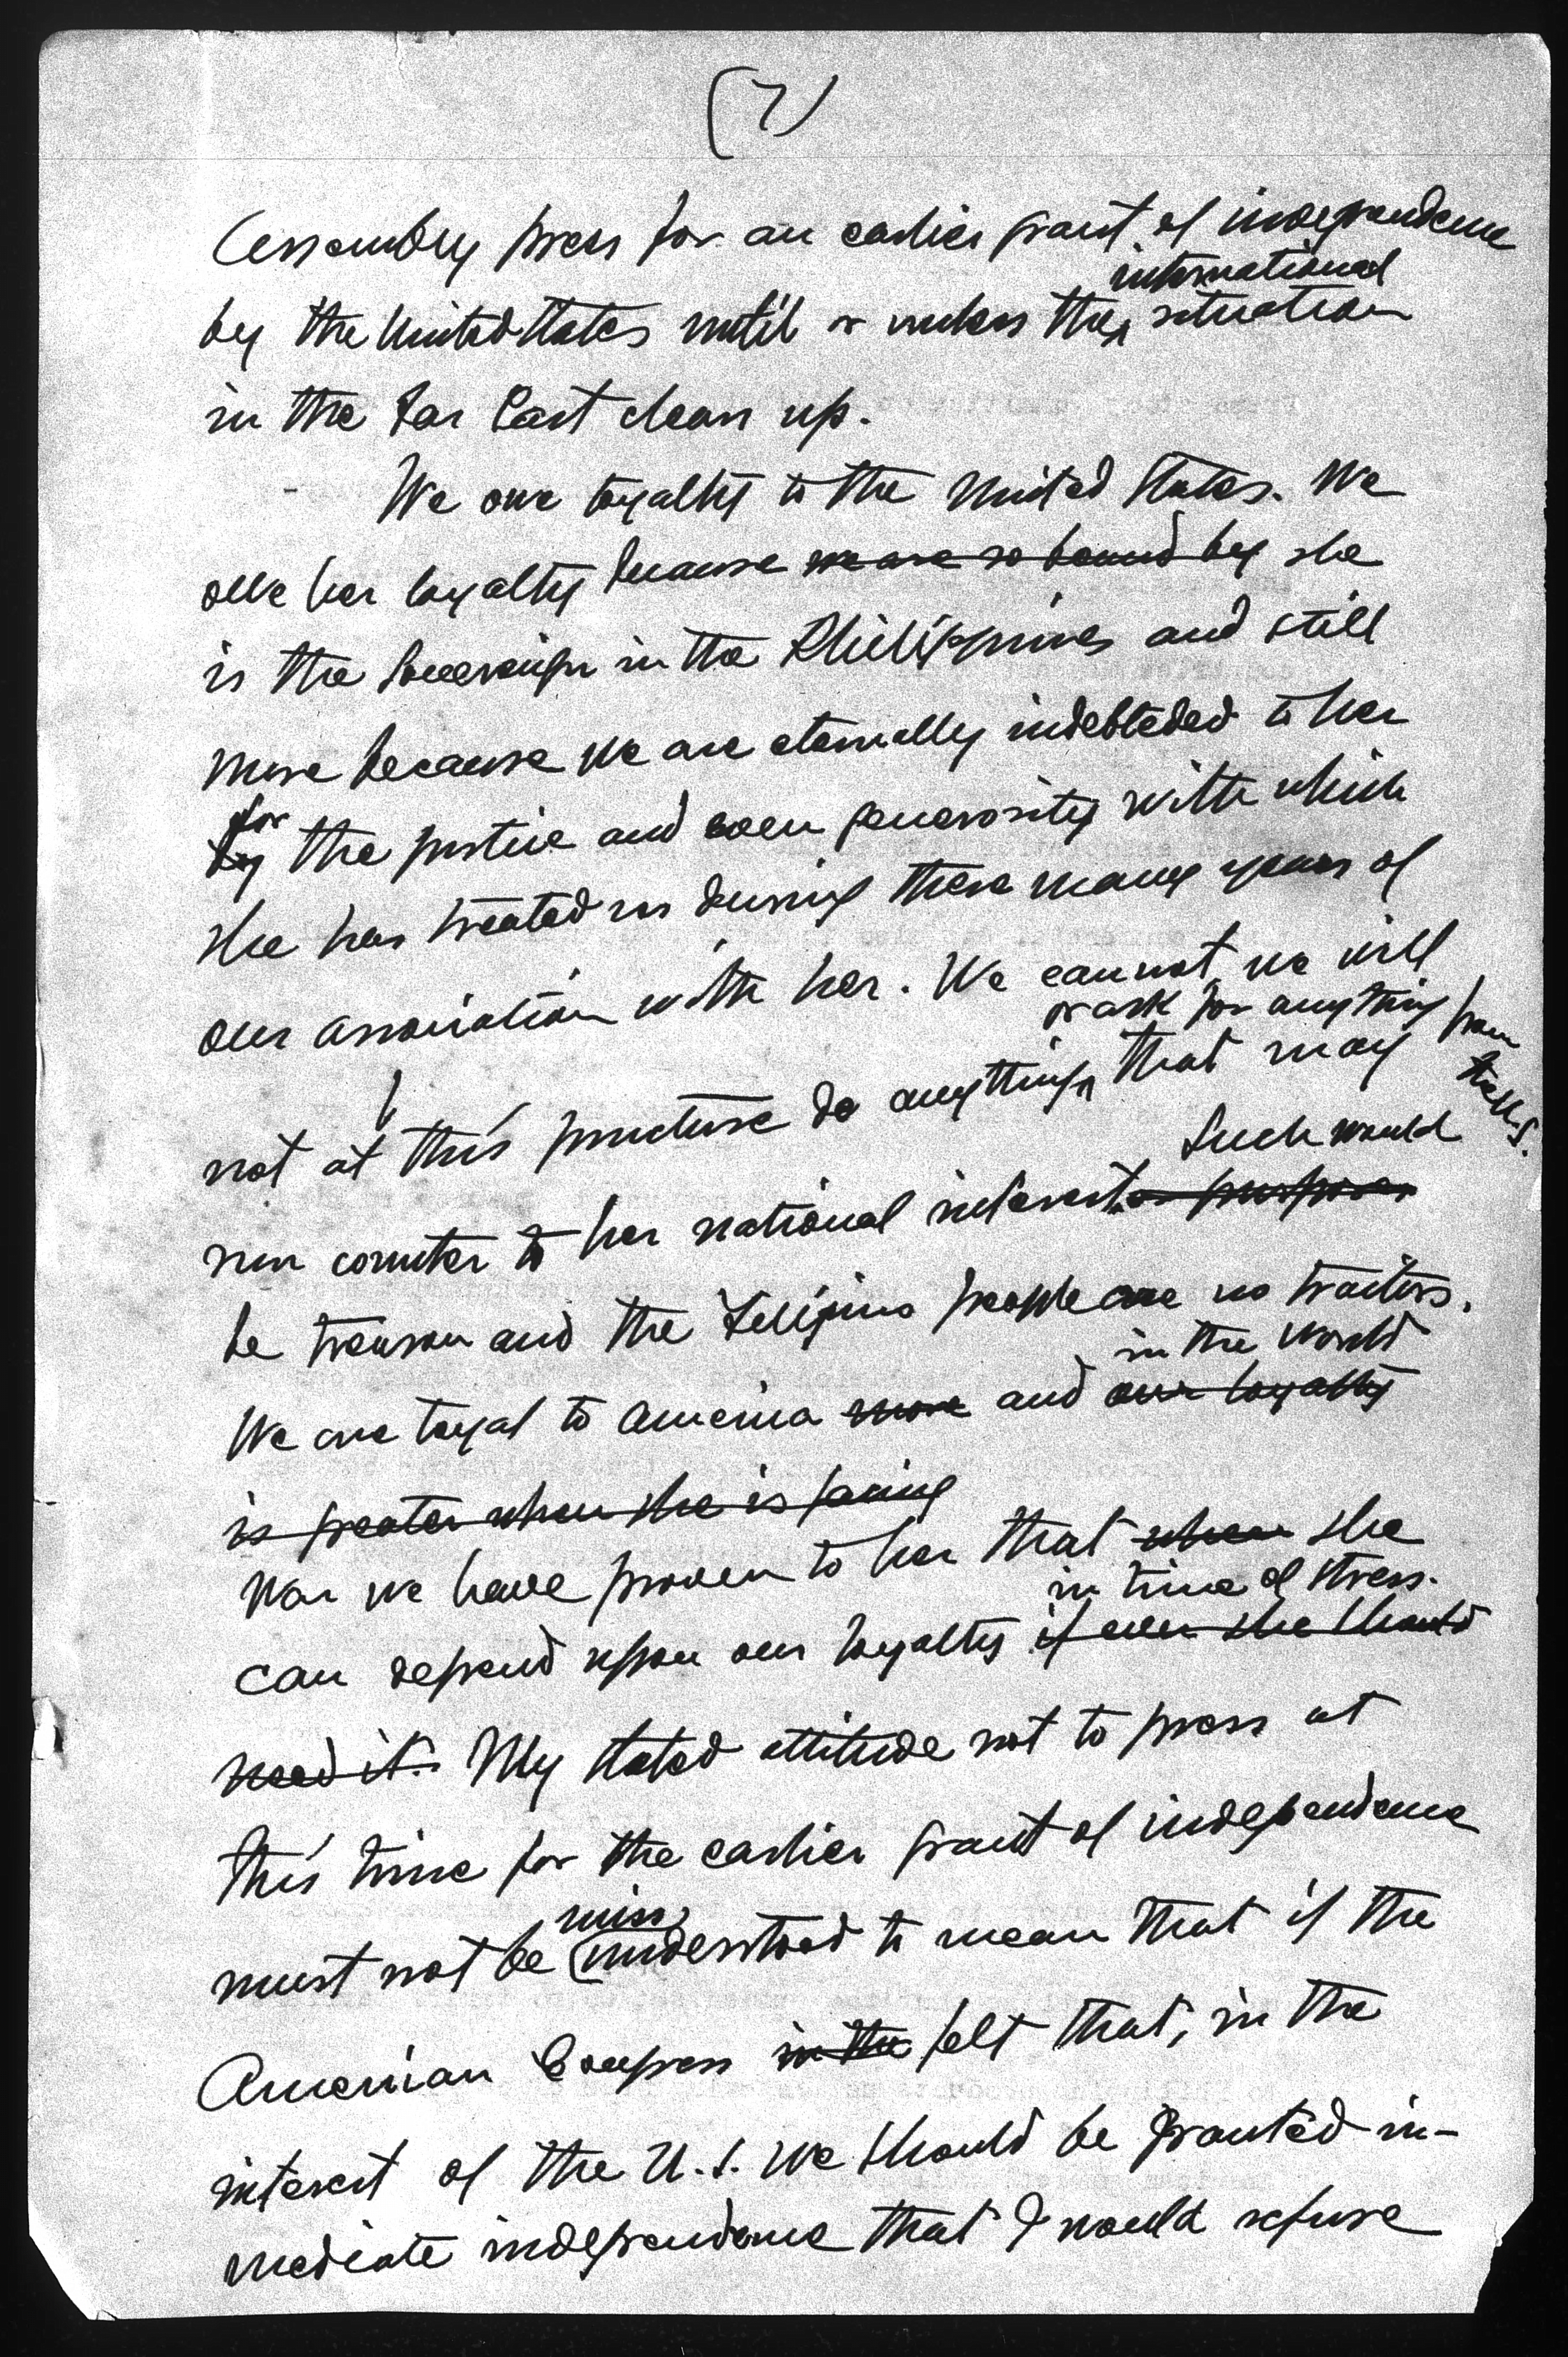 (7)
Assembly press for an earlier grant of independence
international
by the United States until or unless the situation
in the Far East clears up.
We owe loyalty to the United States. We
owe her loyalty because we are so bound by she
is the Sovereign in the Philippines and still
more because we are eternally indebteded to her
for
by the justice and even generosity with which
she has treated us during these many years of
our association with her. We cannot, we will
or ask for anything from the U.S.
not at this juncture do anything that may
Such would
run counter to her national interest. or purposes
be treason and the Filipino people are no traitors.
in the World
We are loyal to America more and our loyalty
is greater when she is facing
War we have proven to her that when she
in time of stress.
can depend upon our loyalty if ever she should
need it. My stated attitude not to press at
this time for the earlier grant of independence
miss
must not be (understood to mean that if the
American Congress in the felt that, in the
interest of the U.S. we should be granted im-
mediate independence that I would refuse